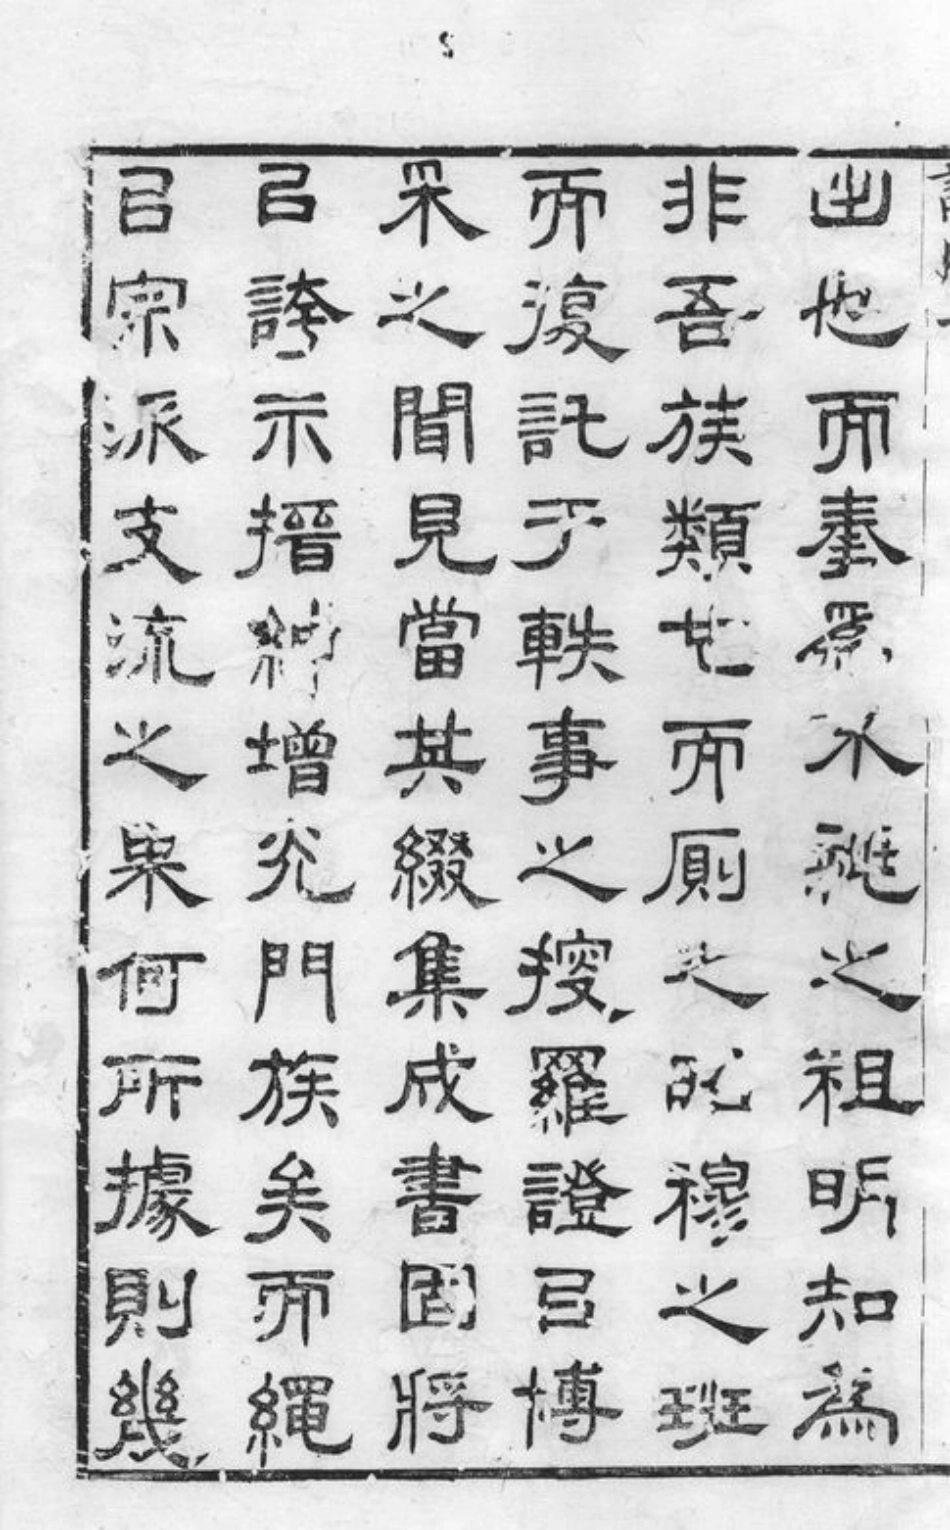 出也而奉爲不祧之祖明知爲
非吾族類也而厠之昭穆之班
而復託于軼事之搜羅證㠯博
采之聞見當其綴集成書固將
㠯誇示搢紳增光門族矣而繩
㠯宗派支流之果何所據則幾